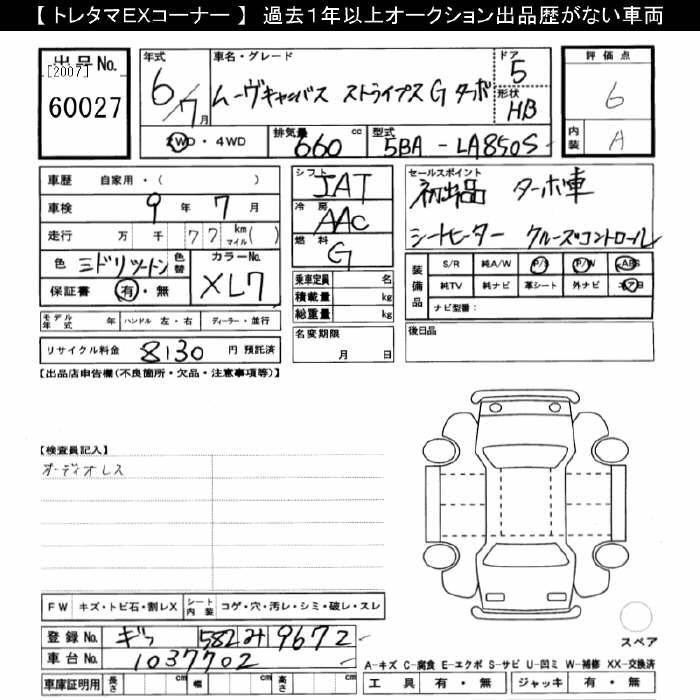 【トレタマEXコーナー】 過去1年以上オークション出品歴がない車両
出品No.
[2007]
60027
年式
6/7月
車名・グレード
ムーヴキャンバス ストライプス G ターボ
ドア
5
形状
HB
評価点
6
内装
A
2WD・4WD
排気量 660 cc
型式 5BA - LA850S
車歴 自家用・( )
車検 9年 7月
走行 万 千 77 km マイル( )
色 ミドリツートン
色替
カラーNo.
XL7
保証書 有・無
シフト
IAT
冷房
AAC
燃料
G
セールスポイント
初出品 ターボ車
シートヒーター クルーズコントロール
乗車定員 名
積載量 kg
総重量 kg
装備品
S/R 純A/W P/S P/W ABS
純TV 純ナビ 革シート 外ナビ
ナビ型番:
モデル年式 年 ハンドル 左・右 ディーラー・並行
名変期限
月 日
後日品
リサイクル料金 8130 円 預託済
【出品店申告欄(不良箇所・欠品・注意事項等)】
【検査員記入】
オーディオレス
FW キズ・トビ石・割レX シート内装 コゲ・穴・汚レ・シミ・破レ・スレ
登録No. ギフ 582 み 9672
車台No. 1037702
車庫証明用 長さ cm 幅 cm 高さ cm
スペア
A-キズ C-腐食 E-エクボ S-サビ U-凹ミ W-補修 XX-交換済
工具 有・無 ジャッキ 有・無